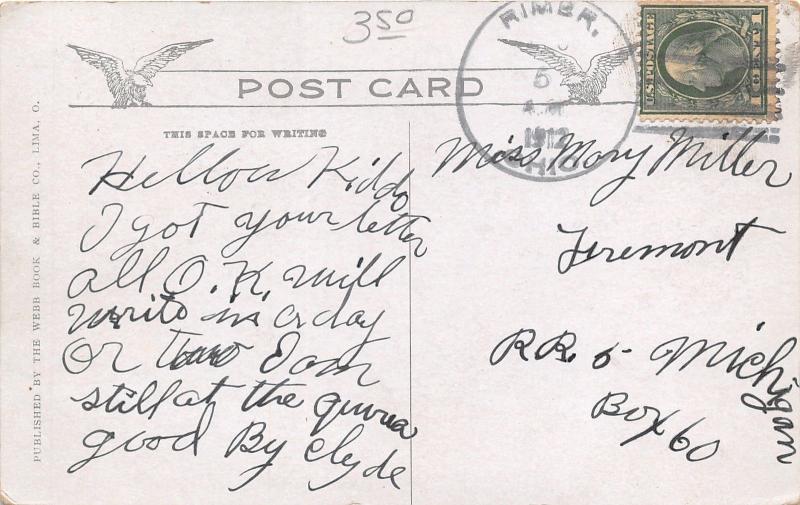 350
POST CARD
THIS SPACE FOR WRITING
PUBLISHED BY THE WEBB BOOK & BIBLE CO., LIMA, O.
RIMER,
5
1912
OHIO
U.S. POSTAGE
1 CENT 1
Hellow Kiddo
I got your letter
all O.K. will
write in a day
or two I am
still at the
good By Clyde
Miss Mary Miller
Fremont
RR. 5 Michigan
Box 60